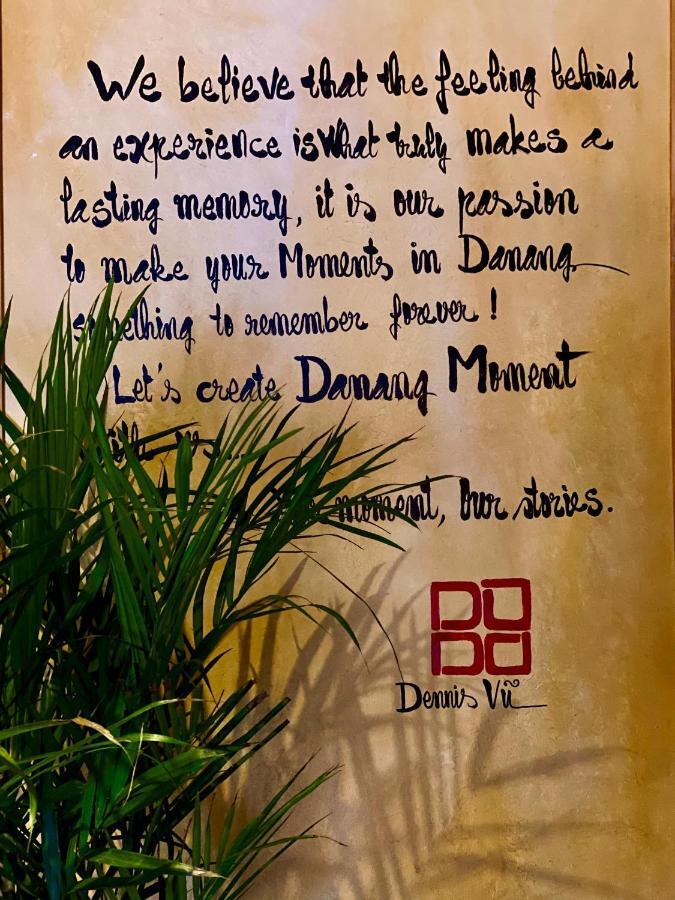 We believe that the feeling behind
an experience is What truly makes a
lasting memory, it is our passion
to make your Moments in Danang
something to remember forever!
Let's create Danang Moment
us...
moment, Our stories.
Dennis Vũ